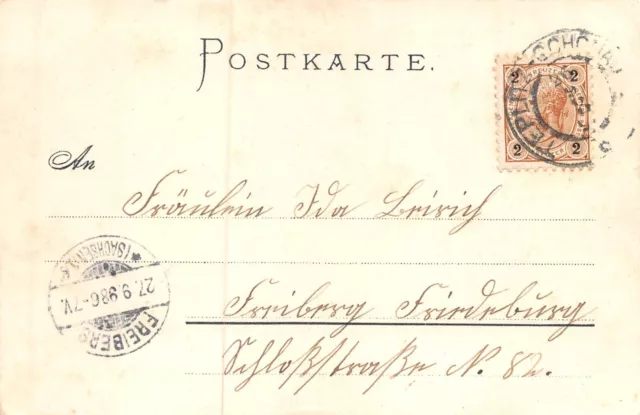 POSTKARTE.
2 2
KREUZER
2 2
TEPLITZ-SCHÖNAU
An
Fräulein Ida Beirich
FREIBERG
27.9.98 6-7V.
(SACHSEN)
Freiberg Friedeburg
Schloßstraße N. 82.